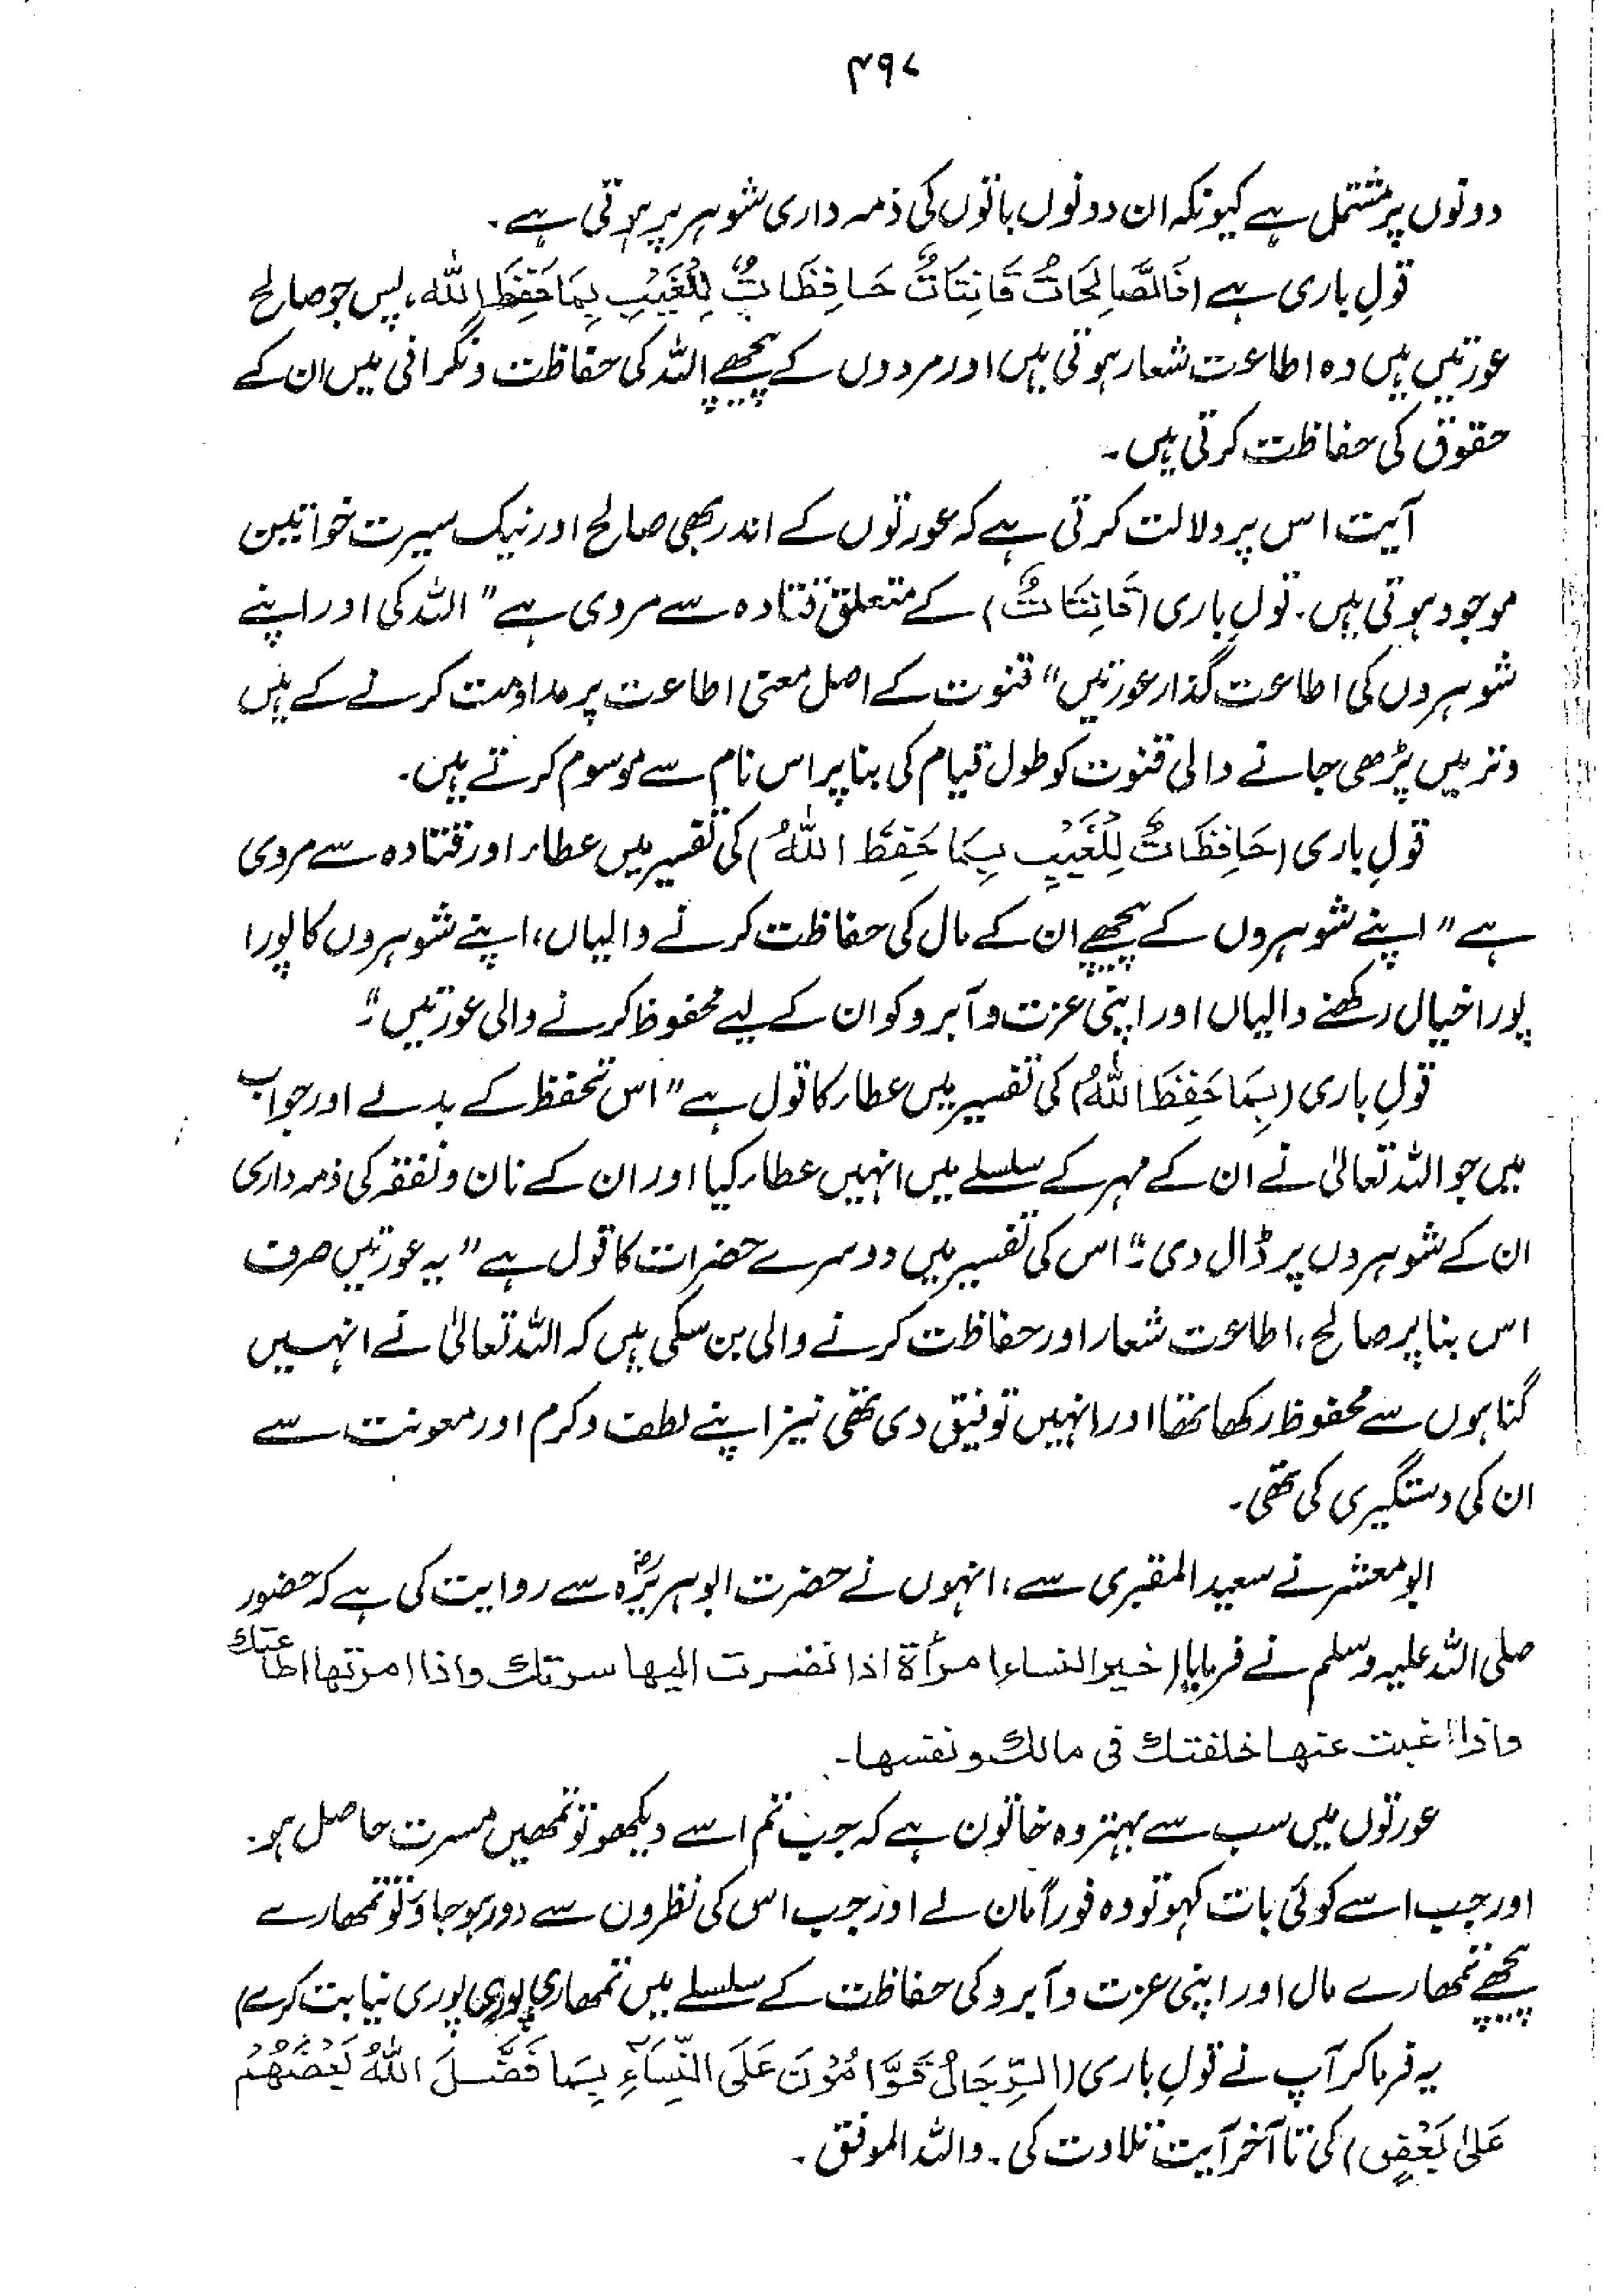 ۴۹۷
دونوں پر مشتمل ہے کیونکہ ان دونوں باتوں کی ذمہ داری شوہر پر ہوتی ہے۔
قولِ باری ہے (فَالصَّالِحَاتُ قَانِتَاتٌ حَافِظَاتٌ لِلْغَيْبِ بِمَا حَفِظَ اللّٰہ، پس جو صالح
عورتیں ہیں وہ اطاعت شعار ہوتی ہیں اور مردوں کے پیچھے اللہ کی حفاظت و نگرانی میں ان کے
حقوق کی حفاظت کرتی ہیں۔
آیت اس پر دلالت کرتی ہے کہ عورتوں کے اندر بھی صالح اور نیک سیرت خواتین
موجود ہوتی ہیں۔ قولِ باری (قَانِتَاتٌ) کے متعلق قتادہ سے مروی ہے "اللہ کی اور اپنے
شوہروں کی اطاعت گذار عورتیں" قنوت کے اصل معنی اطاعت پر مداومت کرنے کے ہیں
وتر میں پڑھی جانے والی قنوت کو طول قیام کی بنا پر اس نام سے موسوم کرتے ہیں۔
قولِ باری (حَافِظَاتٌ لِلْغَيْبِ بِمَا حَفِظَ اللّٰہُ) کی تفسیر میں عطاء اور قتادہ سے مروی
ہے "اپنے شوہروں کے پیچھے ان کے مال کی حفاظت کرنے والیاں، اپنے شوہروں کا پورا
پورا خیال رکھنے والیاں اور اپنی عزت و آبرو کو ان کے لیے محفوظ کرنے والی عورتیں۔"
قولِ باری (بِمَا حَفِظَ اللّٰہُ) کی تفسیر میں عطاء کا قول ہے "اس تحفظ کے بدلے اور جواب
میں جو اللہ تعالیٰ نے ان کے مہر کے سلسلے میں انہیں عطاء کیا اور ان کے نان و نفقہ کی ذمہ داری
ان کے شوہروں پر ڈال دی۔" اس کی تفسیر میں دوسرے حضرات کا قول ہے "یہ عورتیں صرف
اس بنا پر صالح، اطاعت شعار اور حفاظت کرنے والی بن سکی ہیں کہ اللہ تعالیٰ نے انہیں
گناہوں سے محفوظ رکھا تھا اور انہیں توفیق دی تھی نیز اپنے لطف و کرم اور معونت سے
ان کی دستگیری کی تھی۔
ابو معشر نے سعید المقبری سے، انہوں نے حضرت ابوہریرہؓ سے روایت کی ہے کہ حضور
صلی اللہ علیہ وسلم نے فرمایا (خیر النساء امرأة اذا نضرت الیھا سرتك واذا امرتھا اطاعتك
واذا اغبت عنھا خلفتك فی مالك و نفسھا۔
عورتوں میں سب سے بہتر وہ خاتون ہے کہ جب تم اسے دیکھو تو تمہیں مسرت حاصل ہو۔
اور جب اسے کوئی بات کہو تو وہ فوراً مان لے اور جب اس کی نظروں سے دور ہو جاؤ تو تمہارے
پیچھے تمہارے مال اور اپنی عزت و آبرو کی حفاظت کے سلسلے میں تمہاری پوری پوری نیابت کرے)
یہ فرما کر آپ نے قولِ باری (الرِّجَالُ قَوَّامُوْنَ عَلَى النِّسَآءِ بِمَا فَضَّلَ اللّٰهُ بَعْضَهُمْ
عَلىٰ بَعْضٍ) کی تا آخر آیت تلاوت کی۔ واللہ الموفق۔